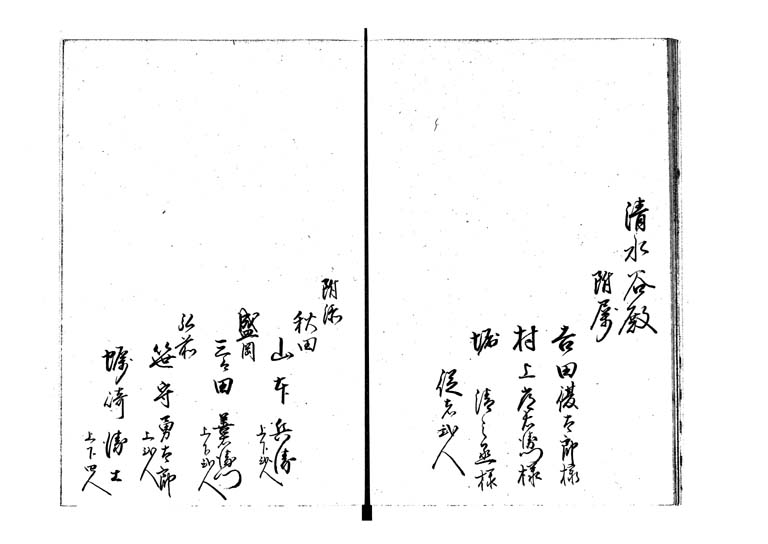 清水谷殿
附属
吉田復太郎様
村上常右衛門様
堀清之丞様
従者弐人
附添
秋田
山本兵衛
上下弐人
盛岡
三田善右衛門
上下弐人
弘前
笹守勇太郎
上弐人
蠣崎衛士
上下四人